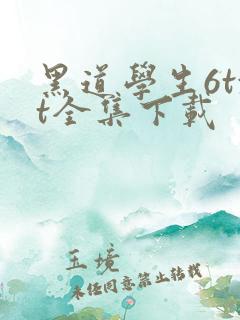 黑道学生6tx
t全集下载
玉境
未经同意禁止转载